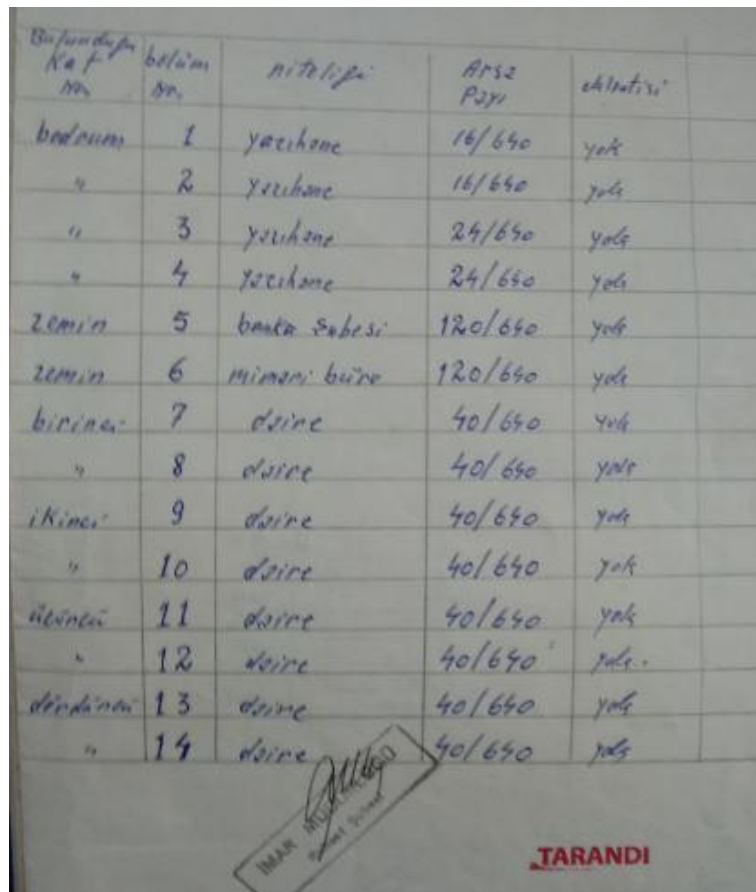 Bulunduğu Kat No. bölüm No. niteliği Arsa Payı eklentisi
bodrum 1 yazıhane 16/640 yok
" 2 yazıhane 16/640 yok
" 3 yazıhane 24/640 yok
" 4 yazıhane 24/640 yok
zemin 5 banka şubesi 120/640 yok
zemin 6 mimari büro 120/640 yok
birinci 7 daire 40/640 yok
" 8 daire 40/640 yok
ikinci 9 daire 40/640 yok
" 10 daire 40/640 yok
üçüncü 11 daire 40/640 yok
" 12 daire 40/640 yok.
dördüncü 13 daire 40/640 yok
" 14 daire 40/640 yok
İMAR
TARANDI